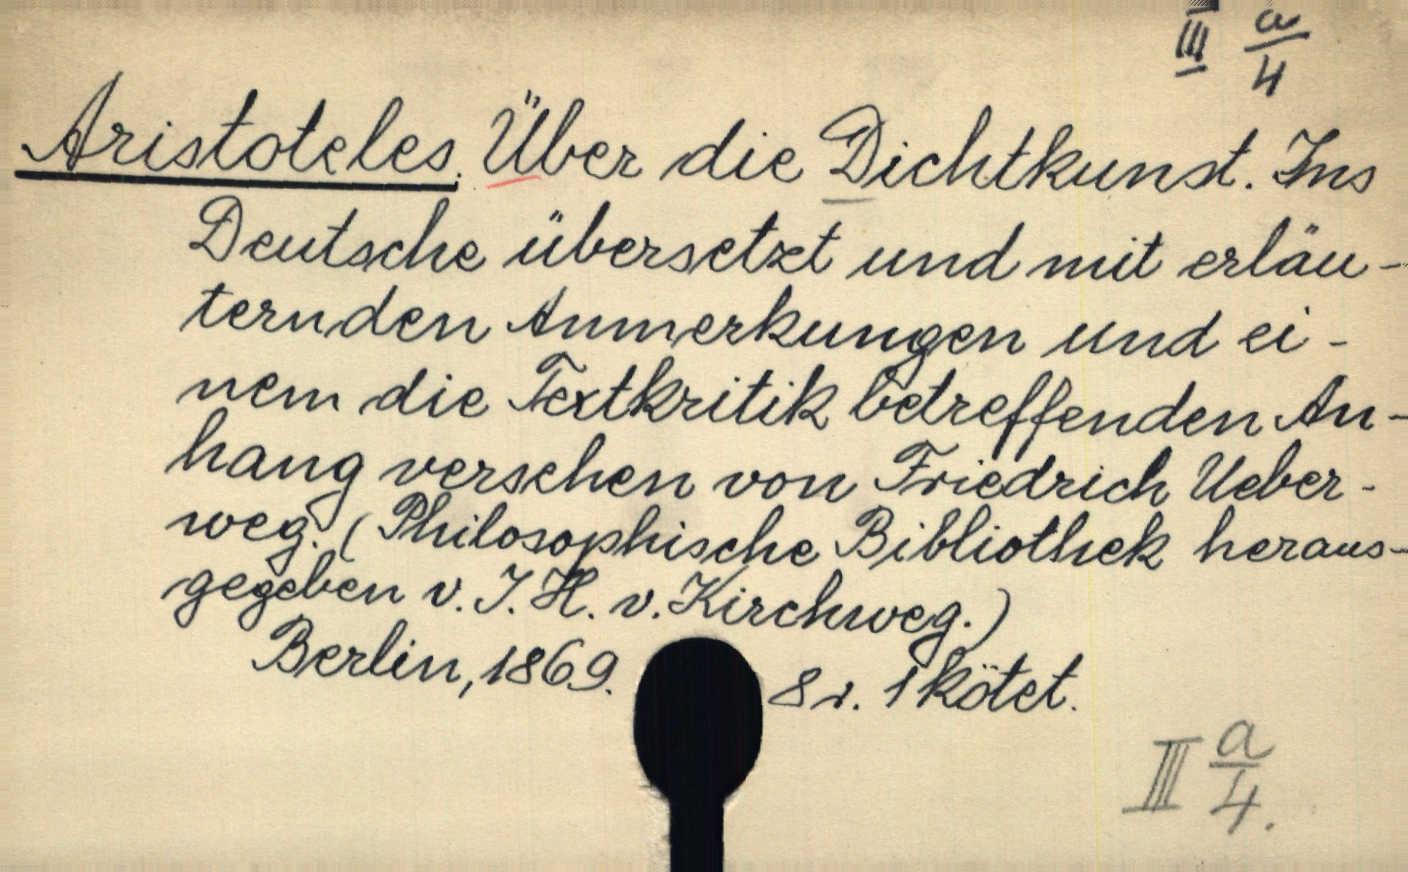 III a/4
Aristoteles. Über die Dichtkunst. Ins
Deutsche übersetzt und mit erläu-
ternden Anmerkungen und ei-
nem die Textkritik betreffenden An-
hang versehen von Friedrich Ueber-
weg. (Philosophische Bibliothek heraus-
gegeben v. J. H. v. Kirchweg.)
Berlin, 1869. 8r. 1 kötet.
III a/4.